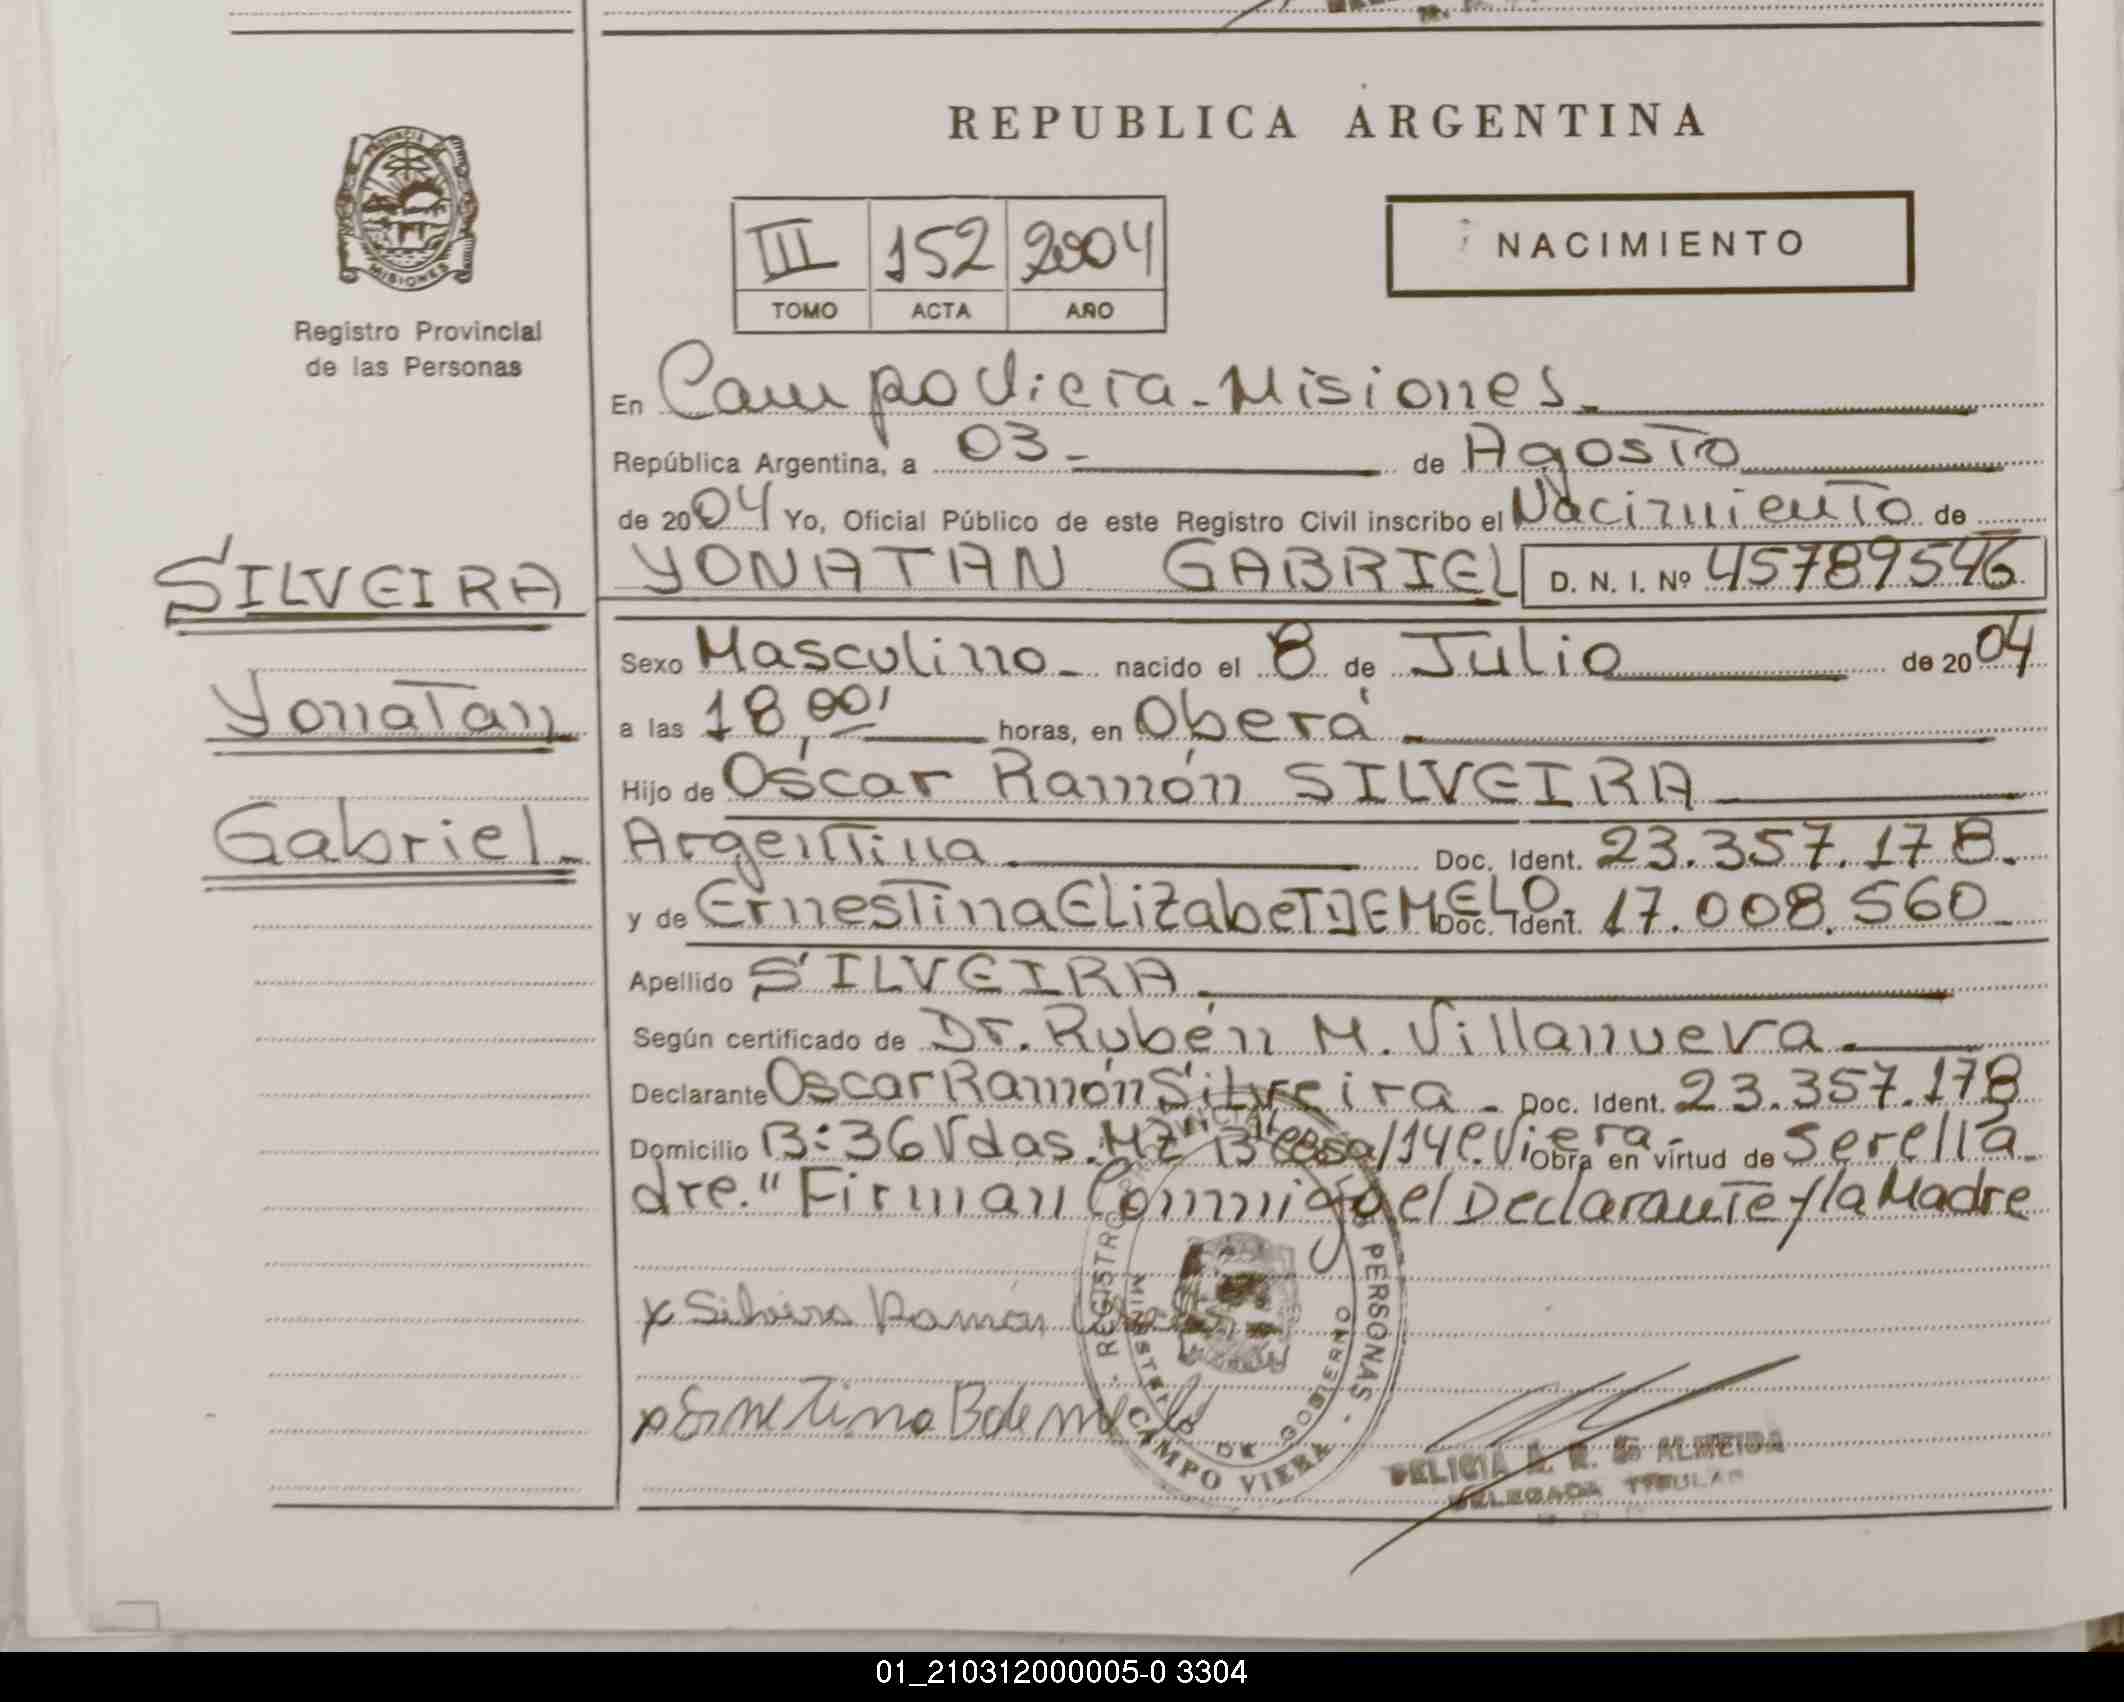 REPUBLICA ARGENTINA
PROVINCIA DE MISIONES
Registro Provincial
de las Personas
III 152 2004
TOMO ACTA AÑO
NACIMIENTO
En Campo Viera - Misiones.
República Argentina, a 03 - de Agosto
de 2004 Yo, Oficial Público de este Registro Civil inscribo el Nacimiento de
YONATAN GABRIEL D. N. I. Nº 45789546
SILVEIRA
Yonatan
Gabriel.
Sexo Masculino - nacido el 8 de Julio de 2004
a las 18,00' horas, en Oberá
Hijo de Oscar Ramón SILVEIRA
Argentina Doc. Ident. 23.357.178.
y de Ernestina Elizabet DE MELO. Doc. Ident. 17.008.560
Apellido SILVEIRA
Según certificado de Dr. Rubén M. Villanueva.
Declarante Oscar Ramón Silveira - Doc. Ident. 23.357.178
Domicilio B: 36 Vdas. Mz B casa/14 C. Viera. Obra en virtud de Ser el Pa
dre." Firman Conmigo el Declarante y la Madre
x Silveira Ramón
REGISTRO PROVINCIAL DE LAS PERSONAS
MINISTERIO DE GOBIERNO
CAMPO VIERA
DELICIA A. R. de ALMEIDA
DELEGADA TITULAR
01_210312000005-0 3304